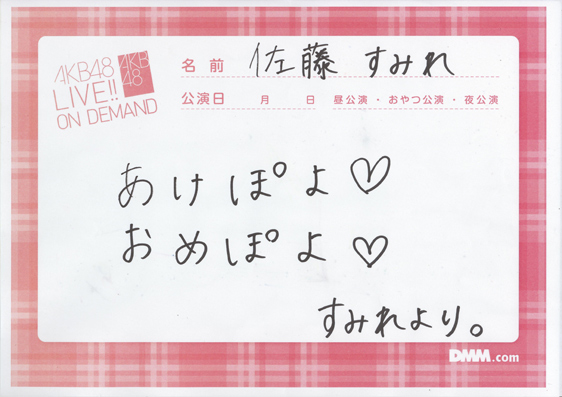 AKB48
LIVE!!
ON DEMAND
AKB
48
名前 佐藤 すみれ
公演日 月 日 昼公演・おやつ公演・夜公演
あけぽよ♡
おめぽよ♡
すみれより。
DMM.com